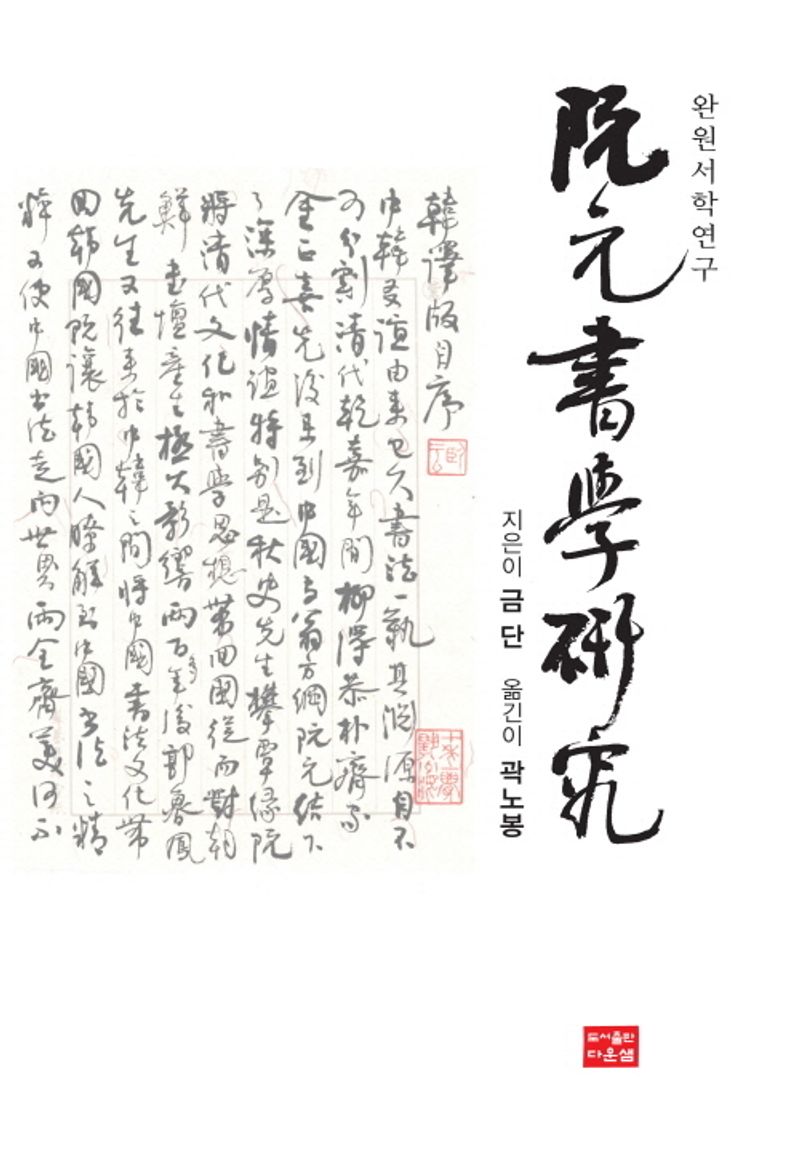 완원서학연구
阮元書學研究
지은이 금 단 옮긴이 곽노봉
韓譯版自序
中韓友誼由來已久書法一藝其淵源自不
可分割清代乾嘉年間柳得恭朴齊家
金正喜先後來到中國與翁方綱阮元結下
了深厚情誼特別是秋史先生攀覃緣阮
將清代文化和書學思想帶回國從而對朝
鮮書壇產生極大影響兩百多年後郭魯鳳
先生又往來於中韓之間將中國書法文化帶
回韓國既讓韓國人瞭解到中國書法之精
粹又使中國書法走向世界兩全齊美何不
도서출판
다운샘